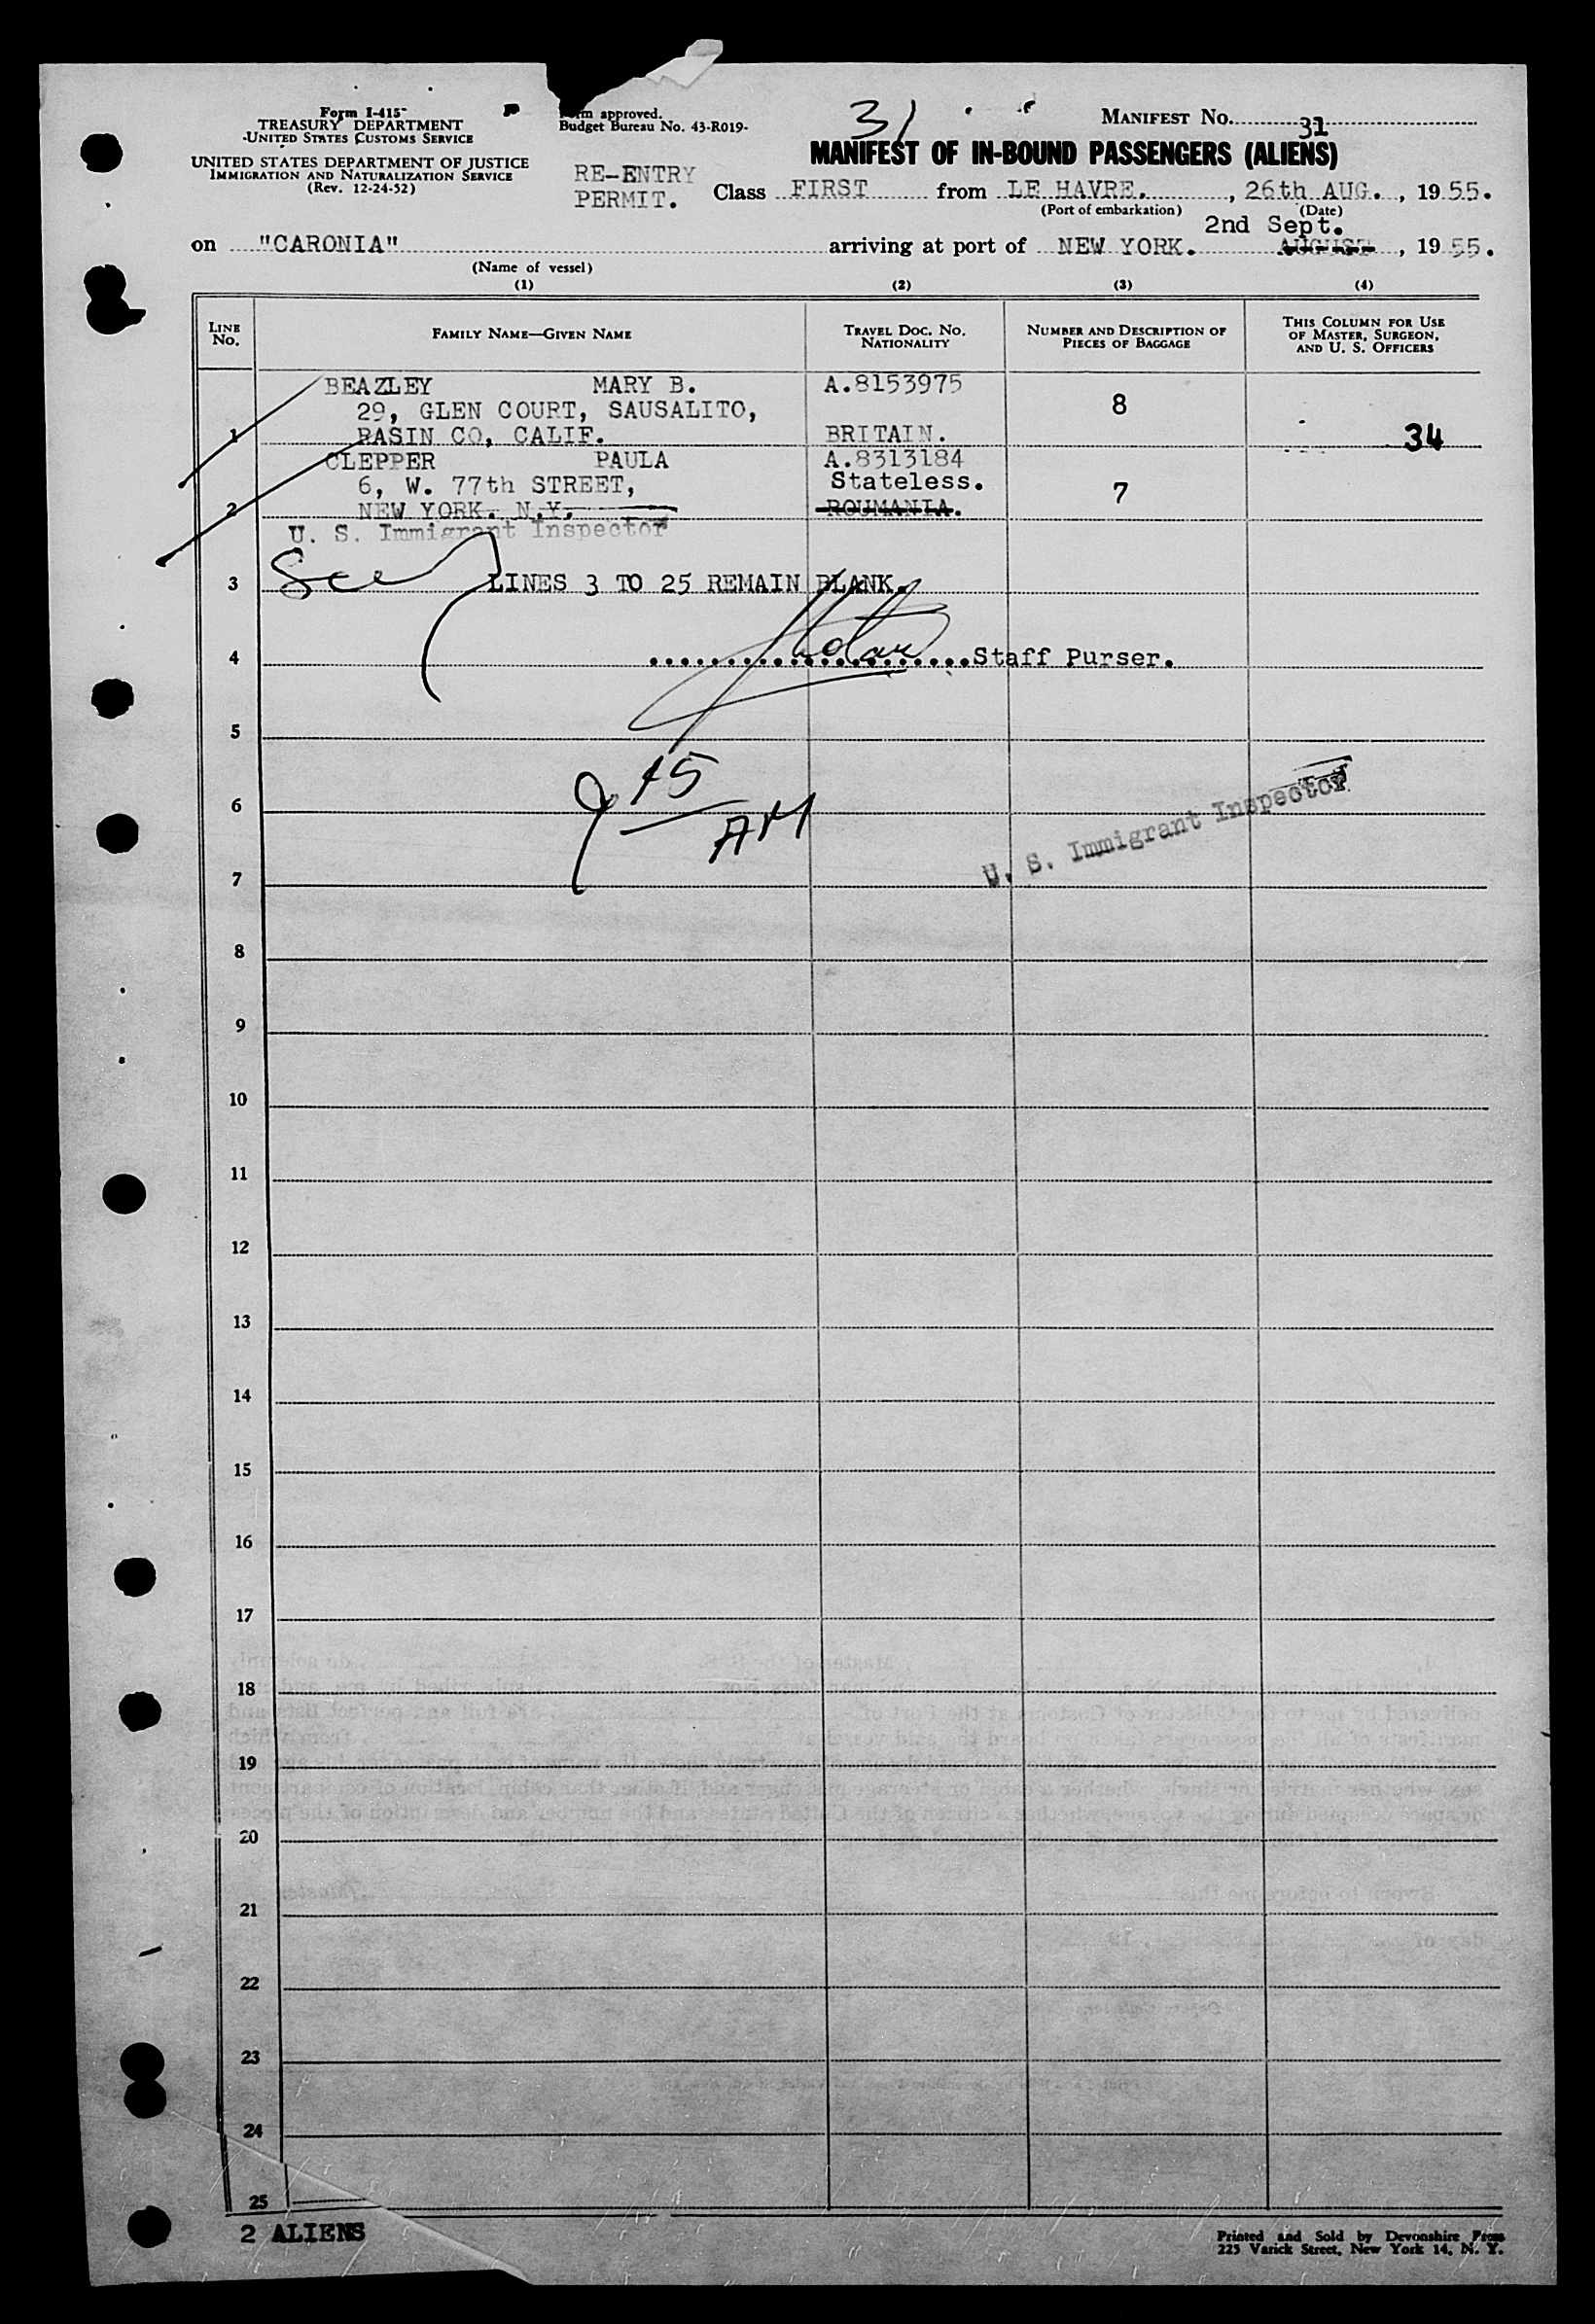 Form I-415
TREASURY DEPARTMENT
UNITED STATES CUSTOMS SERVICE
UNITED STATES DEPARTMENT OF JUSTICE
IMMIGRATION AND NATURALIZATION SERVICE
(Rev. 12-24-52)
Form approved.
Budget Bureau No. 43-R019-
RE-ENTRY
PERMIT.
31
MANIFEST NO. 31
MANIFEST OF IN-BOUND PASSENGERS (ALIENS)
Class FIRST from LE HAVRE. , 26th AUG. , 1955.
(Port of embarkation) (Date)
2nd Sept.
on "CARONIA" arriving at port of NEW YORK. AUGUST , 1955.
(Name of vessel)
(1) (2) (3) (4)
LINE NO.
FAMILY NAME—GIVEN NAME
TRAVEL DOC. NO. NATIONALITY
NUMBER AND DESCRIPTION OF PIECES OF BAGGAGE
THIS COLUMN FOR USE OF MASTER, SURGEON, AND U. S. OFFICERS
BEAZLEY MARY B. A.8153975
29, GLEN COURT, SAUSALITO, 8
1 RASIN CO, CALIF. BRITAIN. 34
CLEPPER PAULA A.8313184
6, W. 77th STREET, Stateless. 7
2 NEW YORK. N.Y. ROUMANIA.
U. S. Immigrant Inspector
3 LINES 3 TO 25 REMAIN BLANK.
4 Staff Purser.
5
9 45 AM
6
U. S. Immigrant Inspector
7
8
9
10
11
12
13
14
15
16
17
18
19
20
21
22
23
24
25
2 ALIENS
Printed and Sold by Devonshire Press
225 Varick Street, New York 14, N. Y.